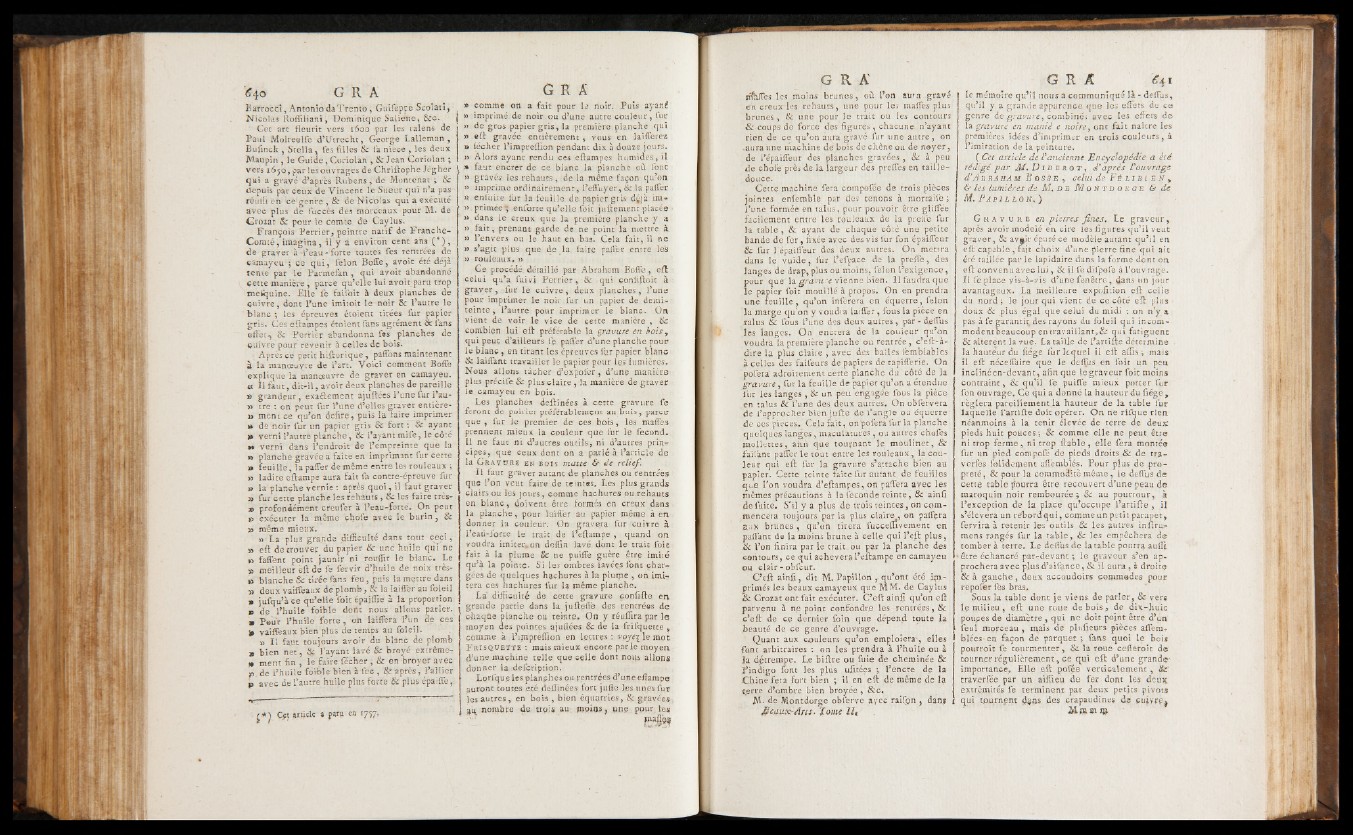 640 G R A
Barrocci, Antonio da Trento, Guiseppe Scolati,
Nicolas Rossiliani, Dominique Saliene, &c.
Cet art fleurit vers 1600 par les talens de
Paul Molreelse d'Utrecht, George Lalleman,
Businck, Stella, ses filles & sa niece, les deux
Maupin, le Guide, Coriolan, & Jean Coriolan ;
vers 1650, par les ouvrages de Christophe Jegher
qui a gravé d'après Rubens, de Montenat ; &
depuis par ceux de Vincent le Sueur qui n'a pas
réussi en ce genre, & de Nicolas qui a exécuté
avec plus de succès des morceaux pour M. de
Crozat & pour le comte de Caylus.
François Perrier, peintre natif de Franche-
Comté, imagina, il y a environ cent ans (*),
de graver à l'eau-forte toutes ses rentrées de
camayeu ; ce qui, selon Bosse, avoit été déjà
tenté par le Parmesan, qui avoit abandonné
cette manière, parce qu'elle lui avoit paru trop
mesquine. Elle se faisoit à deux planches de
cuivre, dont l'une imitoit le noir & l'autre le
blanc ; les épreuves étoient tirées sur papier
gris. Ces estampes étoient sans agrément & sans
effet, & Perrier abandonna ses planches de
cuivre pour revenir à celles de bois.
Après ce petit historique, passons maintenant
à la manœuvre de l'art. Voici comment Bosse
explique la manœuvre de graver en camayeu.
« Il faut, dit-il, avoir deux planches de pareille
» grandeur, exactement ajustées l'une sur l'au-
» tre : on peut sur l'une d'elles graver entière-
» ment ce qu'on desire, puis la faire imprimer
» de noir sur un papier gris & fort : & ayant
» verni l'autre planche, & l'ayant mise, le côté
» verni dans l'endroit de l'empreinte que la
» planche gravée a faite en imprimant sur cette
» feuille, la passer de même entre les rouleaux ;
» ladite estampe aura fait sa contre-épreuve sur
» la planche vernie : après quoi, il faut graver
» sur cette planche les rehauts, & les faire très-
» profondément creuser à l'eau-forte. On peut
» exécuter la même chose avec le burin, &
» même mieux.
» La plus grande difficulté dans tout ceci,
» est de trouver du papier & une huile qui ne
» fassent point jaunir ni roussir le blanc. Le
» meilleur est de se servir d'huile de noix très-
» blanche & tirée sans feu, puis la mettre dans
» deux vaisseaux de plomb, & la laisser au soleil
» jusqu'à ce qu'elle soit épaissie à la proportion
» de l'huile foible dont nous allons parler.
» Pour l'huile forte, on laissera l'un de ces
» vaisseaux bien plus de temps au soleil.
» Il faut toujours avoir du blanc de plomb
» bien net, & l'ayant lavé & broyé extrême-
» ment fin, le faire sécher, & en broyer avec
» de l'huile foible bien à sec, & après, l'allier
» avec de l'autre huile plus forte & plus épaisse,
(*) Cet article a paru en 1757.
G R A
» comme on a fait pour le noir. Puis ayant
» imprimé de noir ou d'une autre couleur, sur
» de gros papier gris, la première planche qui
» est gravée entièrement, vous en laisserez
» sécher l'impression pendant dix à douze jours.
» Alors ayant rendu ces estampes humides, il
» faut encrer de ce blanc la planche où sont
» gravés les rehauts, de la même façon qu'on
» imprime ordinairement, l'essuyer, & la passer
» ensuite sur la feuille de papier gris déjà im-
» primée ; ensorte qu'elle soit justement placée
» dans le creux que la première planche y a
» fait, prenant garde de ne point la mettre à
» l'envers ou le haut en bas. Cela fait, il ne
» s'agit plus que de la faire passer entre les
» rouleaux. »
Ce procédé détaillé par Abraham Bosse, est
celui qu'a suivi Perrier, & qui consistoit à
graver, sur le cuivre, deux planches, l'une
pour imprimer le noir sur un papier de demi-
teinte, l'autre pour imprimer le blanc. On
vient de voir le vice de cette manière, &
combien lui est préférable la gravure en bois,
qui peut d'ailleurs se passer d'une planche pour
le blanc, en tirant les épreuves sur papier blanc
& laissant travailler le papier pour les lumières.
Nous allons tâcher d'exposer, d'une manière
plus précise & plus claire, la manière de graver
le camayeu en bois.
Les planches destinées à cette gravure se
feront de poirier préférablement au buis, parce
que, sur le premier de ces bois, les masses
prennent mieux la couleur que sur le second.
Il ne faut ni d'autres outils, ni d'autres prin-
cipes, que ceux dont on a parlé à l'article de
la GRAVURE EN BOIS matte & de relief.
Il faut graver autant de planches ou rentrées
que l'on veut faire de teintes. Les plus grands
clairs ou les jours, comme hachures ou rehauts
en blanc, doivent être formés en creux dans
la planche, pour laisser au papier même à en
donner la couleur. On gravera sur cuivre à
l'eau-forte le trait de l'estampe, quand on
voudra imiter un dessin lavé dont le trait soit
fait à la plume & ne puisse guère être imité
qu'à la pointe. Si les ombres lavées sont char-
gées de quelques hachures à la plume, on imi-
tera ces hachures sur la même planche.
La difficulté de cette gravure consiste en
grande partie dans la justesse des rentrées de
chaque planche ou teinte. On y réussira par le
moyen des pointes ajustées & de la frisquette,
comme à l'impression en lettres : voyez le mot
FRISQUETTE : mais mieux encore par le moyen
d'une machine telle que celle dont nous allons
donner la description.
Lorsque les planches ou rentrées d'une estampe
auront toutes été dessinées fort juste les unes sur
les autres, en bois, bien équarries, & gravées
au nombre de trois au moins, une pour les
masses
G R A
masses les moins brunes, où l'on aura gravé
en creux les rehauts, une pour les masses plus
brunes, & une pour le trait ou les contours
& coups de force des figures, chacune n'ayant
rien de ce qu'on aura gravé sur une autre, on
aura une machine de bois de chêne ou de noyer,
de l'épaisseur des planches gravées, & à peu
de chose près de la largeur des presses en taille-
douce.
Cette machine sera composée de trois pièces
jointes ensemble par des tenons à mortaise ;
l'une formée en talus, pour pouvoir être glissée
facilement entre les rouleaux de la presse sur
la table, & ayant de chaque côté une petite
bande de fer, fixée avec des vis sur son épaisseur
& sur l'épaisseur des deux autres. On mettra
dans le vuide, sur l'espace de la presse, des
langes de drap, plus ou moins, selon l'exigence,
pour que la gravure vienne bien. Il faudra que
le papier soit mouillé à propos. On en prendra
une feuille, qu'on insérera en équerre, selon
la marge qu'on y voudra laisser, sous la pièce en
talus & sous l'une des deux autres, par-dessus
les langes. On encrera de la couleur qu'on
voudra la première planche ou rentrée, c'est-à-
dire la plus claire, avec des balles semblables
à celles des faiseurs de papiers de tapisserie. On
posera adroitement cette planche du côté de la
gravure, sur la feuille de papier qu'on a étendue
sur les langes, & un peu engagée sous la pièce
en talus & l'une des deux autres. On observera
de l'approcher bien juste de l'angle ou équerre
de ces pièces. Cela fait, on posera sur la planche
quelques langes, maculatures, ou autres choses
mollettes, afin que tournant le moulinet, &
faisant passer le tout entre les rouleaux, la cou-
leur qui est sur la gravure s'attache bien au
papier. Cette teinte faite sur autant de feuilles
que l'on voudra d'estampes, on passera avec les
mêmes précautions à la seconde teinte, & ainsi
de suite. S'il y a plus de trois teintes, on com-
mencera toujours par la plus claire, on passera
aux brunes, qu'on tirera successivement en
passant de la moins brune à celle qui l'est plus,
& l'on finira par le trait ou par la planche des
contours, ce qui achevera l'estampe en camayeu
ou clair-obscur.
C'est ainsi, dit M. Papillon, qu'ont été im-
primés les beaux camayeux que MM. de Caylus
& Crozat ont fait exécuter. C'est ainsi qu'on est
parvenu à ne point confondre les rentrées, &
c'est de ce dernier soin que dépend toute la
beauté de ce genre d'ouvrage.
Quant aux couleurs qu'on emploiera, elles
sont arbitraires : on les prendra à l'huile ou à
la détrempe. Le bistre ou suie de cheminée &
l'indigo sont les plus usitées ; l'encre de la
Chine fera fort bien ; il en est de même de la
terre d'ombre bien broyée, &c.
M. de Montdorge observe avec raison, dans
Beaux-Arts. Tome II.
G R A 641
le mémoire qu'il nous a communiqué là-dessus,
qu'il y a grande apparence que les effets de ce
genre de gravure, combinés avec les effets de
la gravure en manière noire, ont fait naître les
premières idées d'imprimer en trois couleurs, à
l'imitation de la peinture.
( Cet article de l'ancienne Encyclopédie a été
rédigé par M. DIDEROT, d'après l'ouvrage
d'ABRAHAM BOSSE, celui de FÉLIBIEN,
& les lumières de M. DE MONTDORGE & de
M. PAPILLON. )
GRAVURE en pierres fines. Le graveur,
après avoir modelé en cire les figures qu'il veut
graver, & avoir épuré ce modèle autant qu'il en
est capable, fait choix d'une pierre fine qui ait
été taillée par le lapidaire dans la forme dont on
est convenu avec lui, & il se dispose à l'ouvrage.
Il se place vis-à-vis d'une fenêtre, dans un jour
avantageux. La meilleure exposition est celle
du nord ; le jour qui vient de ce côté est plus
doux & plus égal que celui du midi : on n'y a
pas à se garantir des rayons du soleil qui incom-
modent beaucoup en travaillant, & qui fatiguent
& altèrent la vue. La taille de l'artiste détermine
la hauteur du siége sur lequel il est assis ; mais
il est nécessaire que le dessus en soit un peu
incliné en-devant, afin que le graveur soit moins
contraint, & qu'il se puisse mieux porter sur
son ouvrage. Ce qui a donné la hauteur du siége,
réglera pareillement la hauteur de la table sur
laquelle l'artiste doit opérer. On ne risque rien
néanmoins à la tenir élevée de terre de deux
pieds huit pouces ; & comme elle ne peut être
ni trop ferme, ni trop stable, elle sera montée
sur un pied composé de pieds droits & de tra-
verses solidement assemblés. Pour plus de pro-
preté, & pour la commodité même, le dessus de
cette table pourra être recouvert d'une peau de
maroquin noir rembourée ; & au pourtour, à
l'exception de la place qu'occupe l'artiste, il
s'élevera un rebord qui, comme un petit parapet,
servira à retenir les outils & les autres instru-
mens rangés sur la table, & les empêchera de
tomber à terre. Le dessus de la table pourra aussi
être échancré par-devant ; le graveur s'en ap-
prochera avec plus d'aisance, & il aura, à droite
& à gauche, deux accoudoirs commodes pour
reposer ses bras.
Sous la table dont je viens de parler, & vers
le milieu, est une roue de bois, de dix-huit
pouces de diamètre, qui ne doit point être d'un
seul morceau, mais de plusieurs pièces assem-
blées en façon de parquet ; sans quoi le bois
pourroit se tourmenter, & la roue cesseroit de
tourner régulièrement, ce qui est d'une grande
importance. Elle est posée verticalement, &
traversée par un aissieu de fer dont les deux
extrémités se terminent par deux petits pivots
qui tournent dans des crapaudines de cuivre,
M m m m